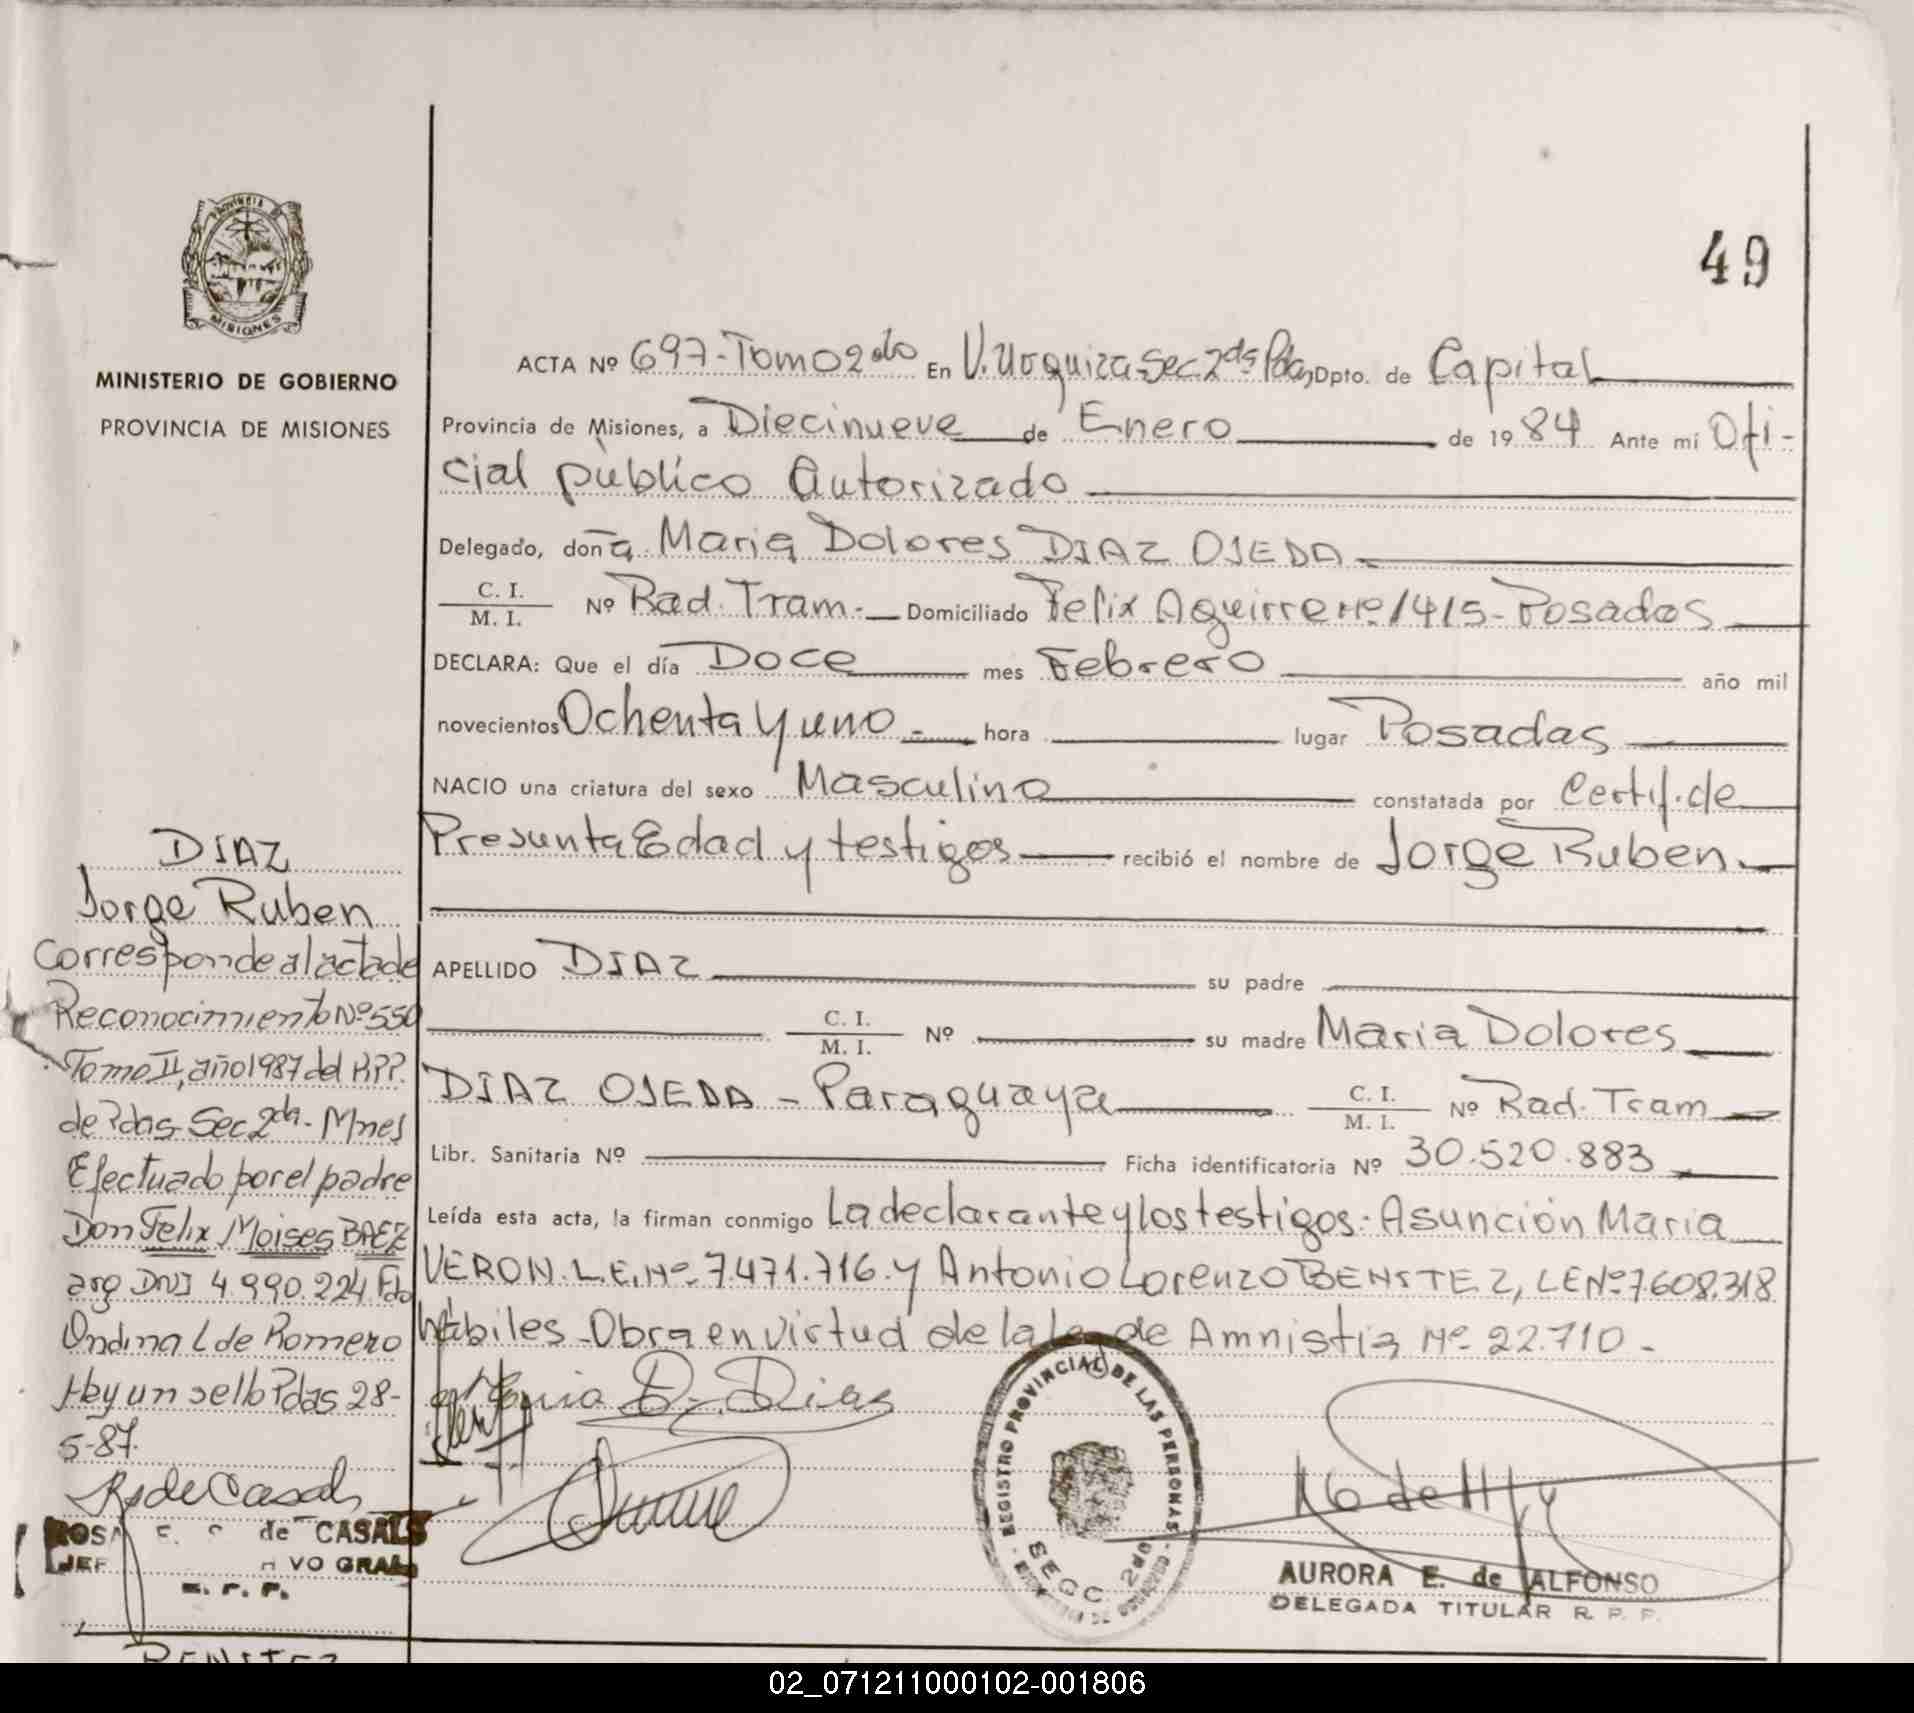 49
PROVINCIA DE
MISIONES
MINISTERIO DE GOBIERNO
PROVINCIA DE MISIONES
ACTA Nº 697-Tomo 2do En V. Urquiza-Sec. 2da Pdas, Dpto. de Capital
Provincia de Misiones, a Diecinueve de Enero de 1984 Ante mí Ofi-
cial público Autorizado
Delegado, don a Maria Dolores DIAZ OJEDA
C. I.
M. I. Nº Rad. Tram. Domiciliado Felix Aguirre Nº 1415-Posadas
DECLARA: Que el día Doce mes Febrero año mil
novecientos Ochenta y uno hora lugar Posadas
NACIO una criatura del sexo Masculino constatada por Certif. de
Presunta Edad y testigos recibió el nombre de Jorge Ruben.
APELLIDO DIAZ su padre
C. I.
M. I. Nº su madre Maria Dolores
DIAZ OJEDA - Paraguaya C. I.
M. I. Nº Rad. Tram
Libr. Sanitaria Nº Ficha identificatoria Nº 30.520.883
Leída esta acta, la firman conmigo La declarante y los testigos: Asunción Maria
VERON. L.E. Nº 7.471.716. y Antonio Lorenzo BENITEZ, LE Nº 7.608.318
hábiles - Obra en virtud de la Ley de Amnistia Nº 22.710 -
DIAZ
Jorge Ruben
Corresponde al acta de
Reconocimiento Nº 550
Tomo II, año 1987 del RPP.
de Pdas Sec 2da - Mnes
Efectuado por el padre
Don Felix Moises BAEZ
arg DNI 4.990.224 Fdo
Ondina L de Romero
Hay un sello Pdas 28-
5-87.
R de Casals
ROSA de CASALS
VO GRAL
R. P. P.
D. Dias
REGISTRO PROVINCIAL DE LAS PERSONAS
SECC. 2da
AURORA E. de ALFONSO
DELEGADA TITULAR R. P. P.
BENITEZ
02_071211000102-001806